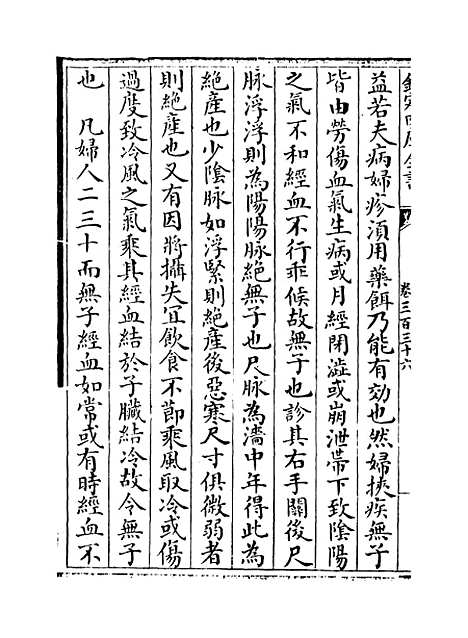 欽定四庫全書
卷三百三十六
益若夫病婦疹須用藥餌乃能有効也然婦挾疾無子
皆由勞傷血氣生病或月經閉澁或崩泄帶下致陰陽
之氣不和經血不行乖候故無子也診其右手關後尺
脉浮浮則為陽陽脉絕無子也尺脉為濇中年得此為
絕產也少陰脉如浮緊則絕產後惡寒尺寸俱微弱者
則絕產也又有因將攝失宜飲食不節乘風取冷或傷
過度致冷風之氣乘其經血結於子臟結冷故令無子
也　凡婦人二三十而無子經血如常或有時經血不